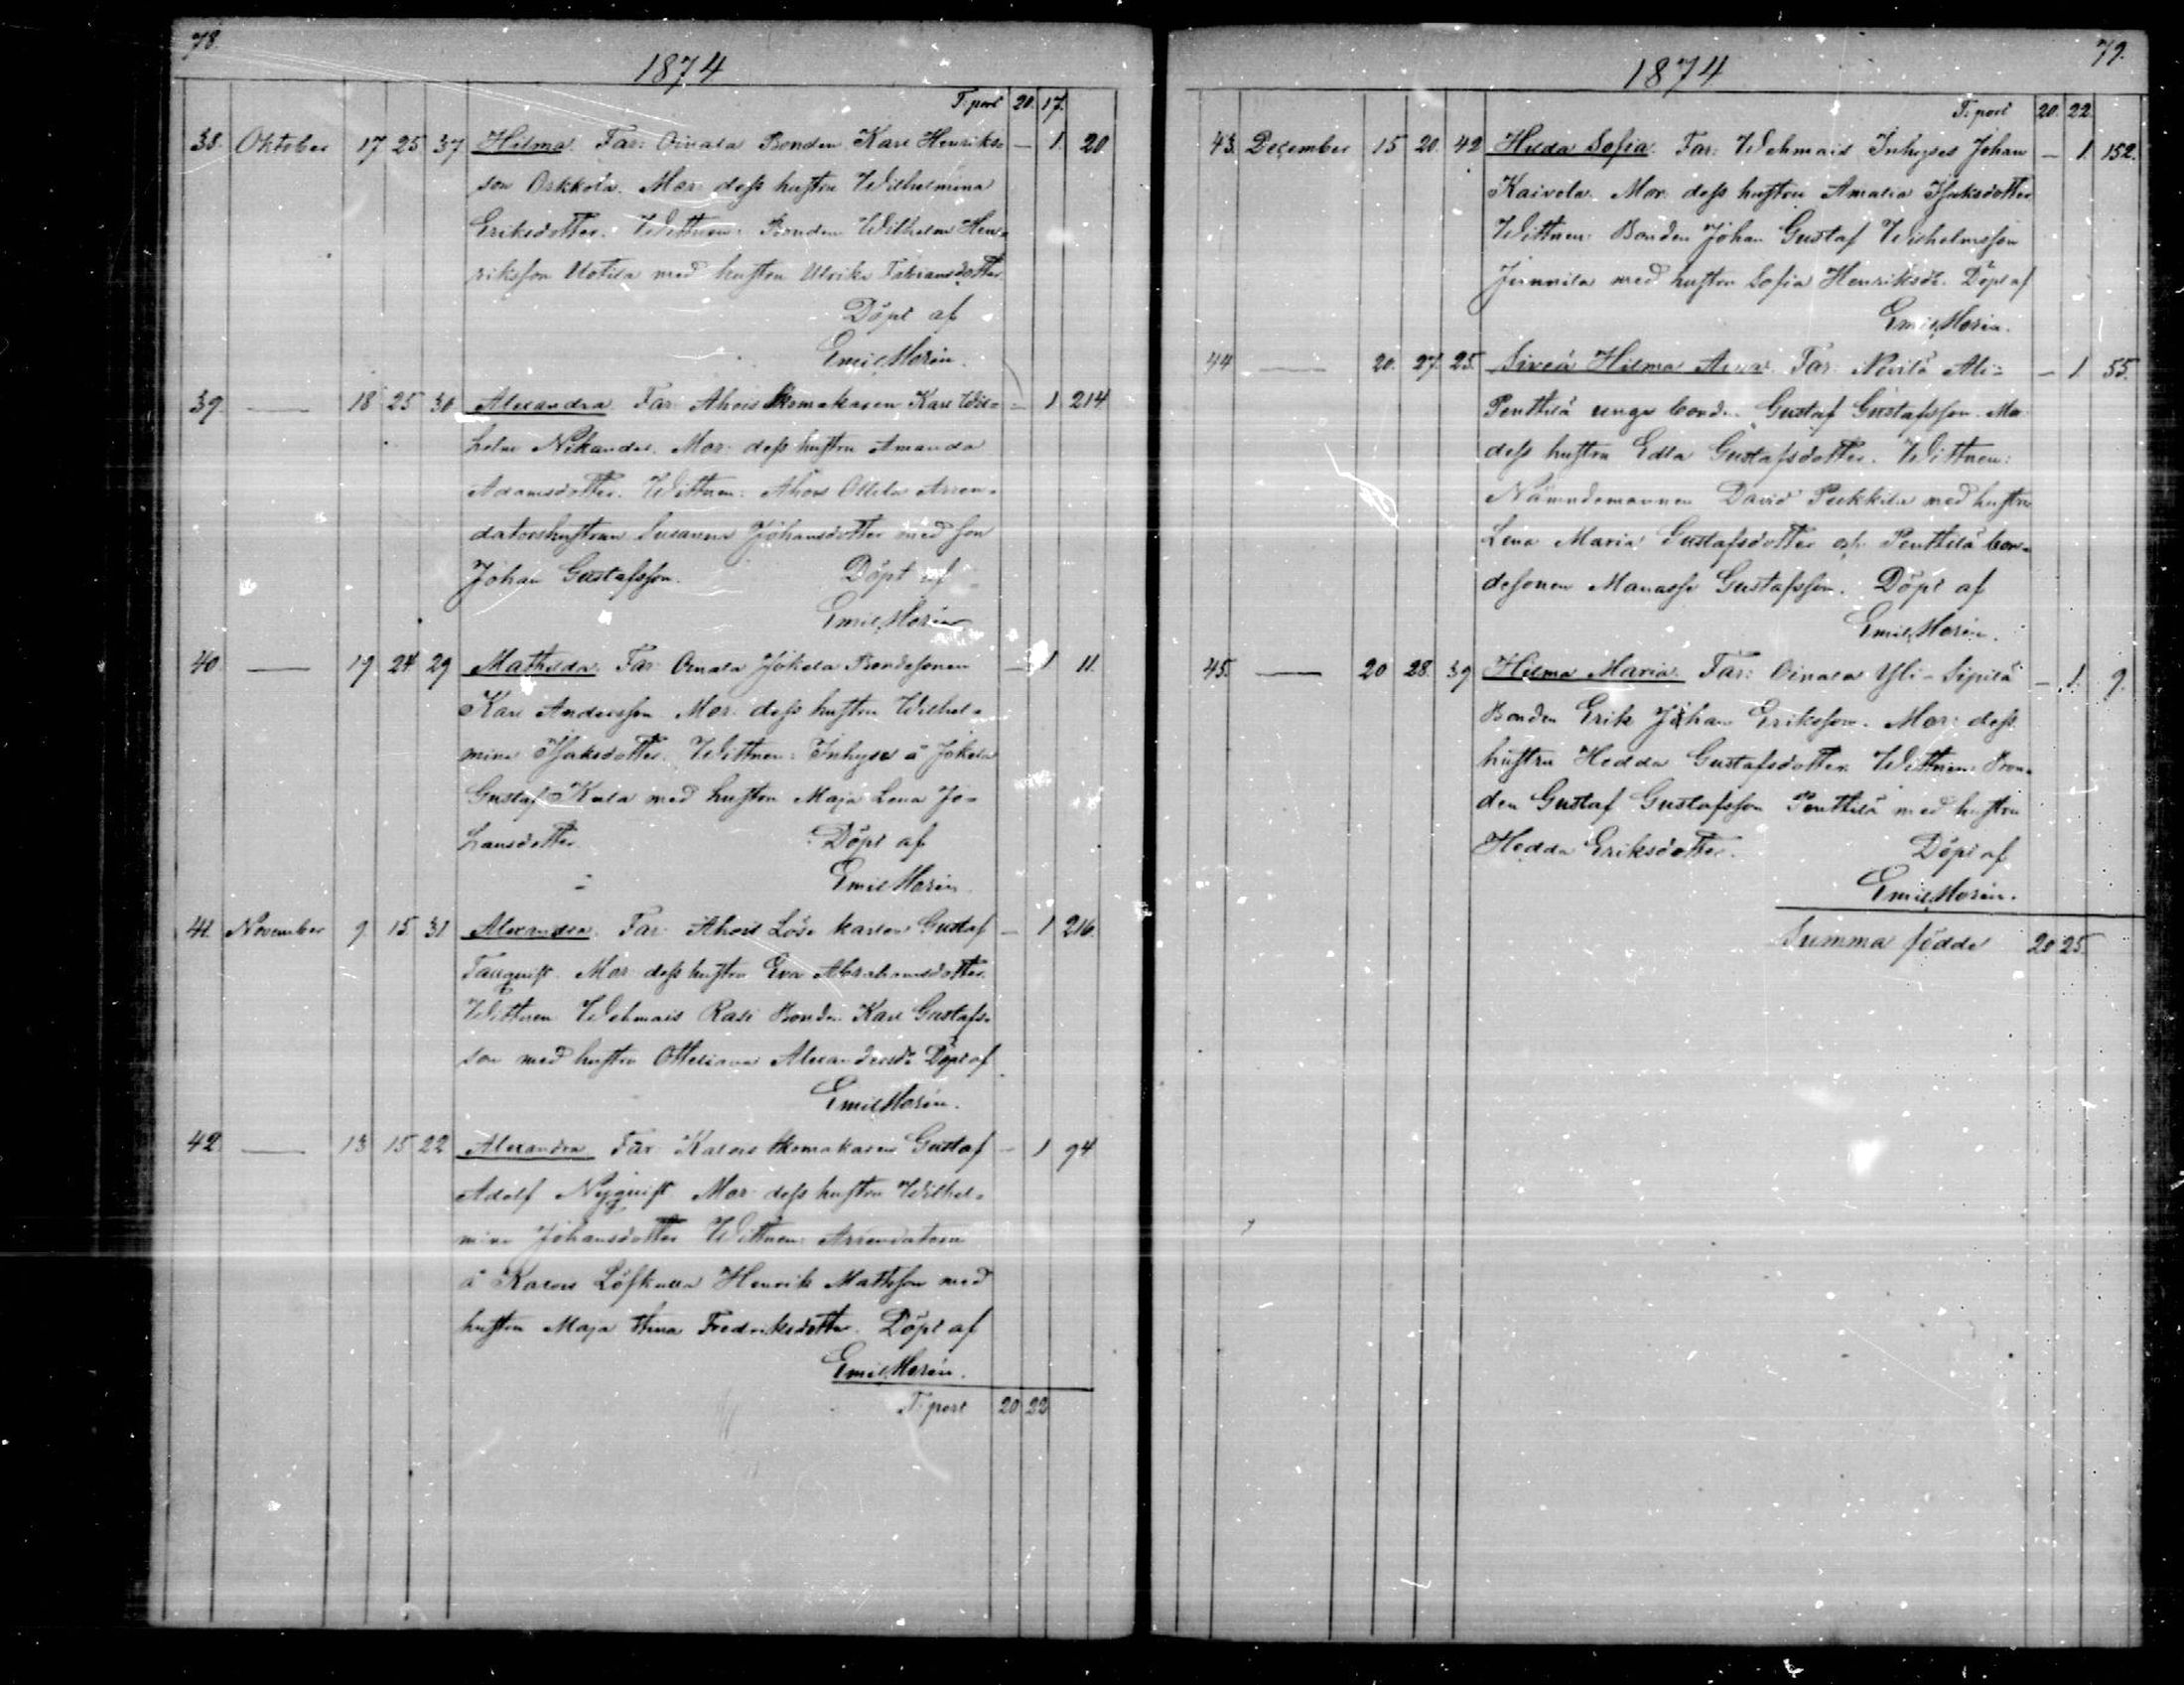 78.
1874
T. port 20. 17.
38. Oktober 17 25 37 Hilma. Far: Oinala Bonden Karl Henriks- — 1 20
son Orkkola. Mor: dess hustru Wilhelmina
Eriksdotter. Wittnen: Bonden Wilhelm Hen-
riksson Uotila med hustru Ulrika Fabiansdotter
Döpt af
Emil Horén.
39. — 18 25 30 Alexandra. Far: Ahois Skomakaren Karl Wil- — 1 214
helm Nikander. Mor: dess hustru Amanda
Adamsdotter. Wittnen: Ahois Ollila Arren-
datorshustrun Susanna Johansdotter med son
Johan Gustafsson. Döpt af
Emil Horén
40. — 19 24 29 Mathilda. Far: Oinala Jokela Bondesonen — 1 11.
Karl Andersson. Mor: dess hustru Wilhel-
mina Isaksdotter. Wittnen: Inhyses å Jokela
Gustaf Kula med hustru Maja Lena Jo-
hansdotter. Döpt af
Emil Horén.
41. November 9 15 31 Alexandra. Far: Ahois Löse karlen Gustaf — 1 216.
Mor: dess hustru Eva Abrahamsdotter.
Wittnen Wehmais Rasi Bonden Karl Gustafs-
son med hustru Otteliana Alexandersdr. Döpt af
Emil Horén.
42. — 13 15 22 Alexandra Far: Kalois Skomakaren Gustaf — 1 94
Adolf Nyqvist Mor: dess hustru Wilhel-
mina Johansdotter Wittnen: Arrendatorn
å Kalois Löfkulla Henrik Mattsson med
hustru Maja Stina Fredriksdotter. Döpt af
Emil Horén.
T. port 20 22
79.
1874
T. port 20. 22.
43. December 15 20. 42 Hilda Sofia. Far: Wehmais Inhyses Johan — 1. 152.
Kaivola. Mor: dess hustru Amalia Isaksdotter
Wittnen: Bonden Johan Gustaf Wilhelmsson
Junnila med hustru Sofia Henriksdr. Döpt af
Emil Horén.
44 — 20. 27. 25. Siveä Hilma Far: Nivilä Ali- — 1. 55.
Penttilä unge bonden Gustaf Gustafsson. Mor
dess hustru Edla Gustafsdotter. Wittnen:
Nämndemannen David Pukkila med hustru
Lena Maria Gustafsdotter och Penttilä bon-
desonen Manasse Gustafsson. Döpt af
Emil Horén.
45. — 20 28. 39 Hilma Maria. Far: Oinala Yli-Sipilä — 1. 9.
Bonden Erik Johan Eriksson. Mor: dess
hustru Hedda Gustafsdotter. Wittnen: Bon-
den Gustaf Gustafsson Penttilä med hustru
Hedda Eriksdotter. Döpt af
Emil Horén.
Summa födde 20 25